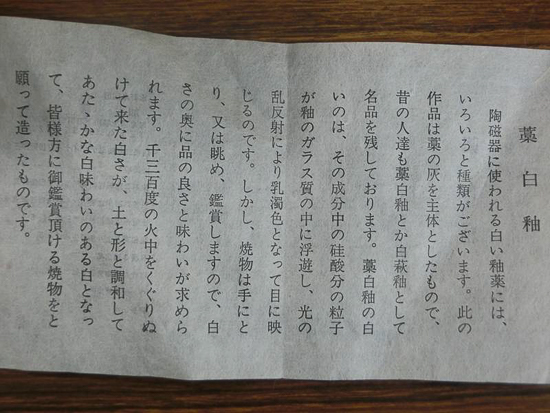 藁白釉
陶磁器に使われる白い釉薬には、
いろいろと種類がございます。此の
作品は藁の灰を主体としたもので、
昔の人達も藁白釉とか白萩釉として
名品を残しております。藁白釉の白
いのは、その成分中の硅酸分の粒子
が釉のガラス質の中に浮遊し、光の
乱反射により乳濁色となって目に映
じるのです。しかし、焼物は手にと
り、又は眺め、鑑賞しますので、白
さの奥に品の良さと味わいが求めら
れます。千三百度の火中をくぐりぬ
けて来た白さが、土と形と調和して
あたゝかな白味わいのある白となっ
て、皆様方に御鑑賞頂ける焼物をと
願って造ったものです。